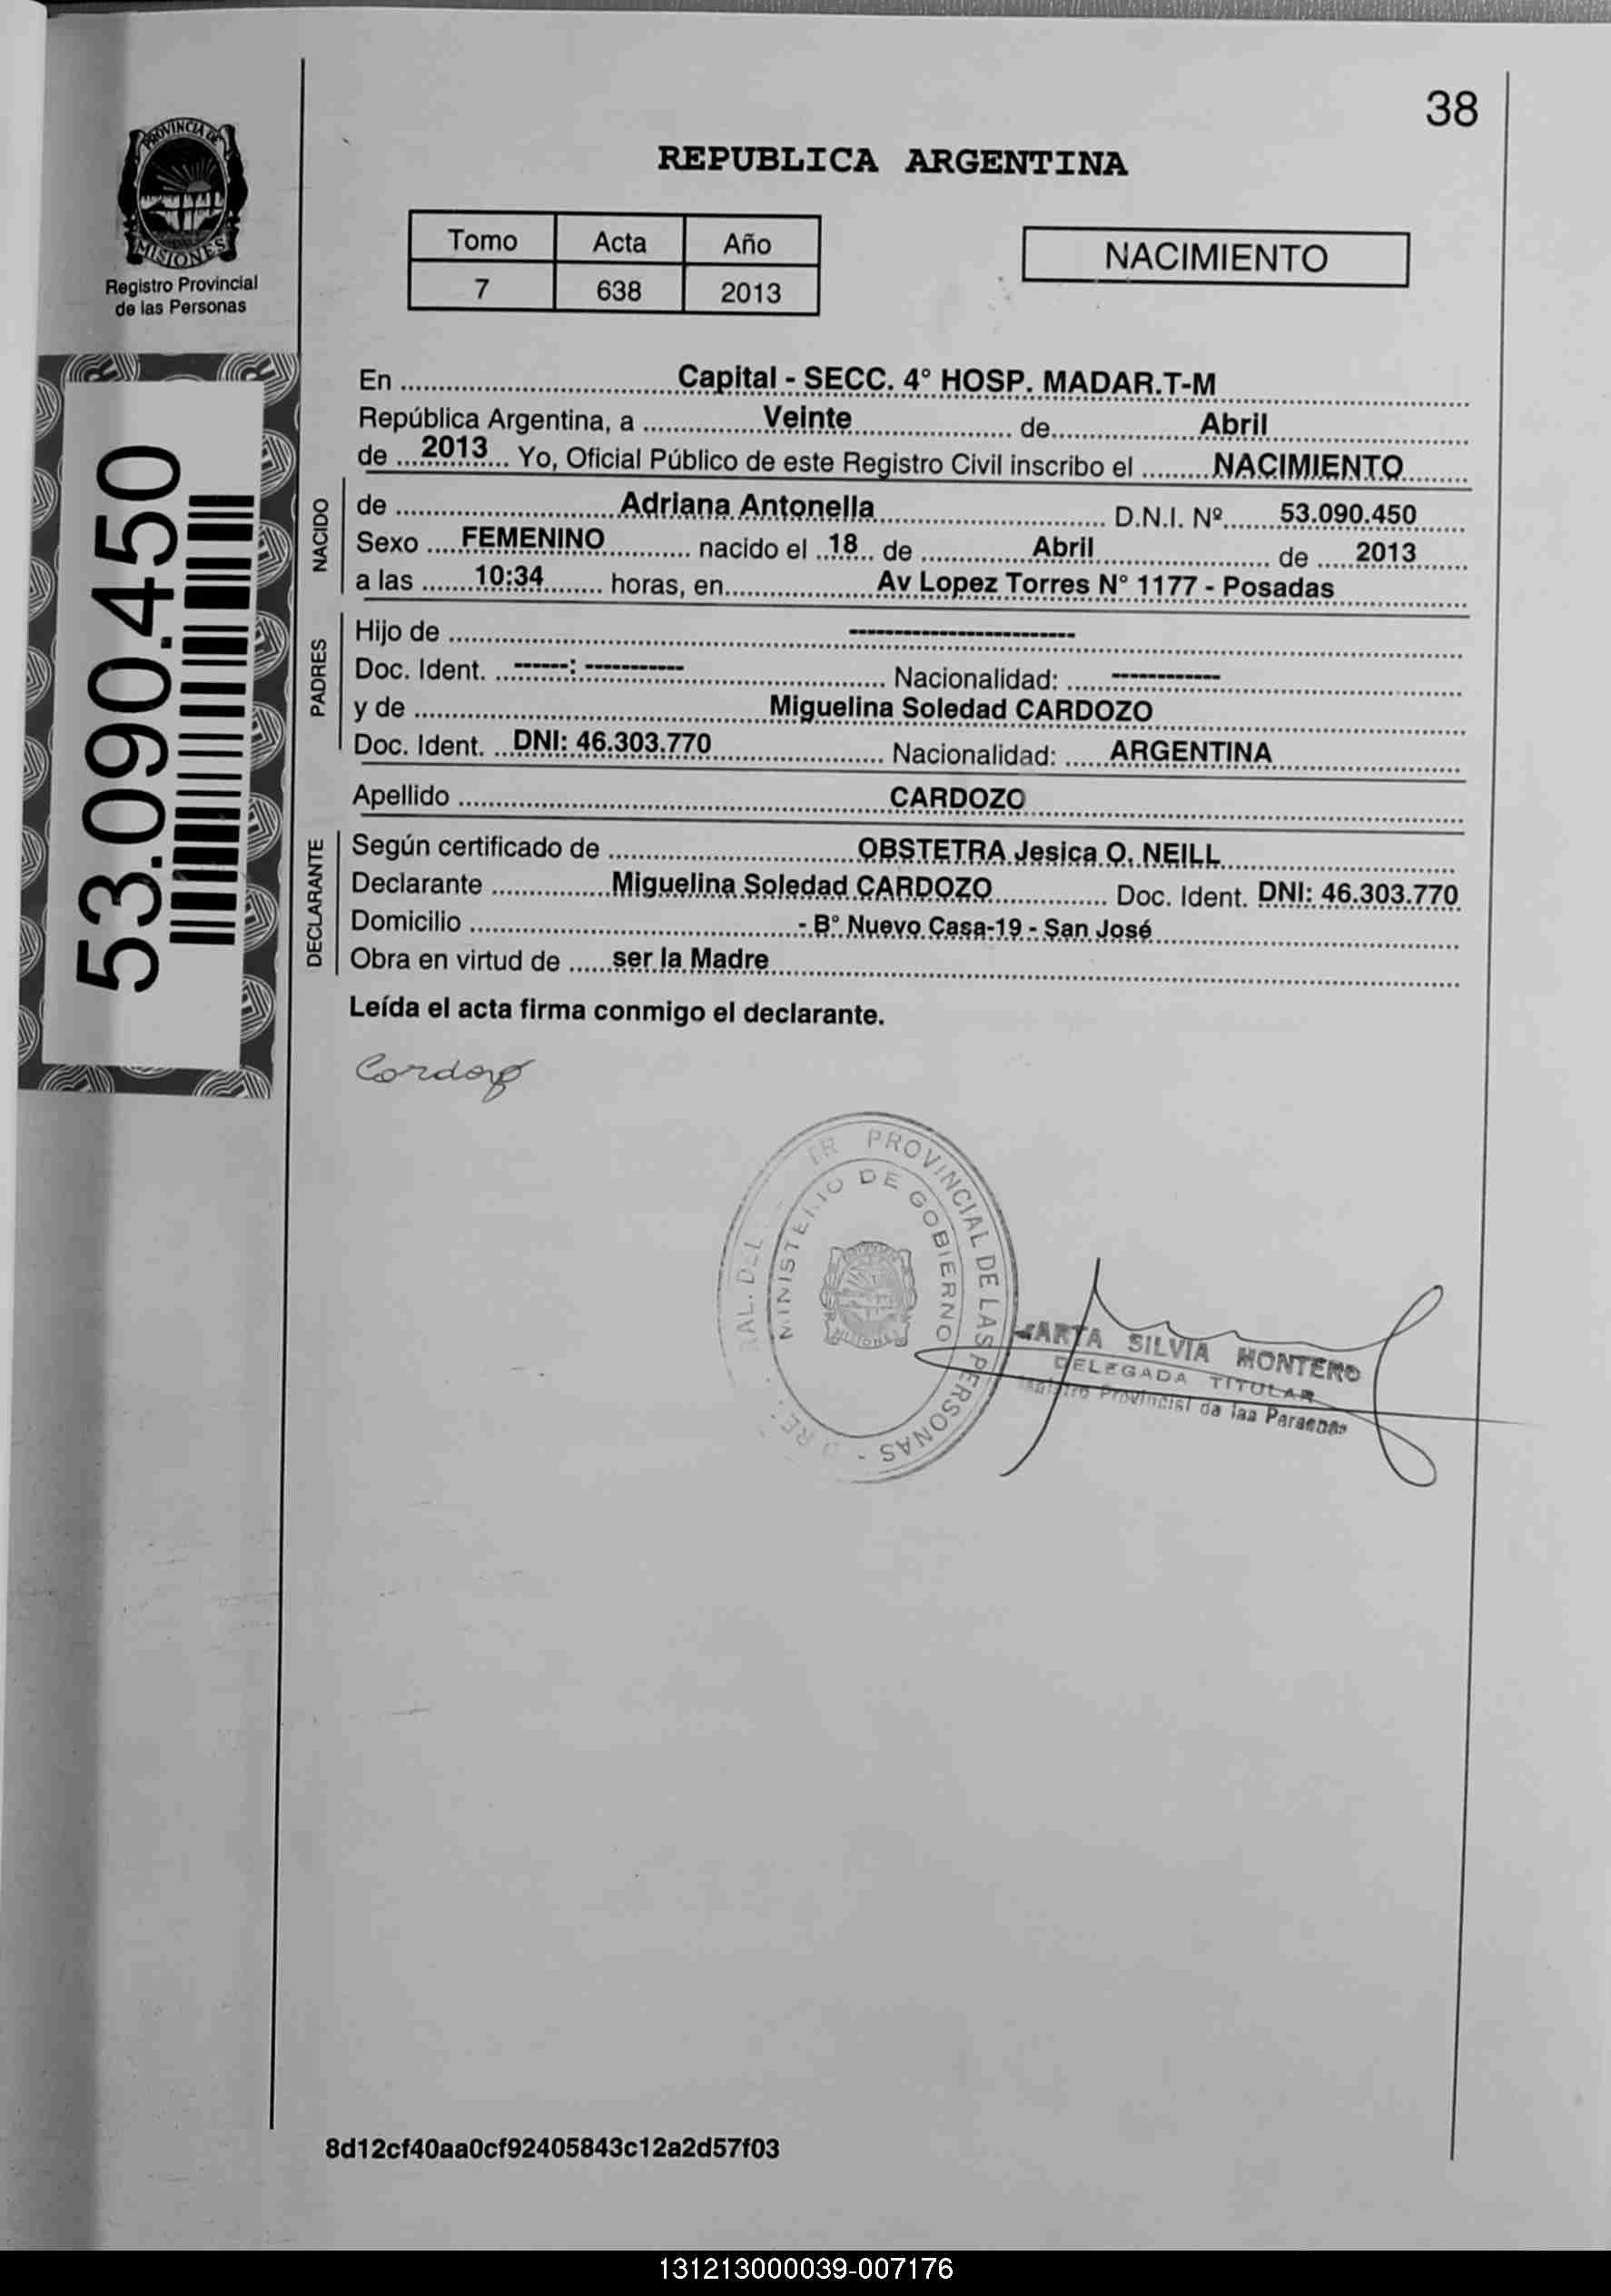 38
PROVINCIA DE
MISIONES
Registro Provincial
de las Personas
REPUBLICA ARGENTINA
Tomo Acta Año
7 638 2013
NACIMIENTO
53.090.450
En Capital - SECC. 4° HOSP. MADAR.T-M
República Argentina, a Veinte de Abril
de 2013 Yo, Oficial Público de este Registro Civil inscribo el NACIMIENTO
NACIDO
de Adriana Antonella D.N.I. Nº 53.090.450
Sexo FEMENINO nacido el 18 de Abril de 2013
a las 10:34 horas, en Av Lopez Torres N° 1177 - Posadas
PADRES
Hijo de -------------------------
Doc. Ident. ------: ----------- Nacionalidad: ------------
y de Miguelina Soledad CARDOZO
Doc. Ident. DNI: 46.303.770 Nacionalidad: ARGENTINA
Apellido CARDOZO
DECLARANTE
Según certificado de OBSTETRA Jesica O. NEILL
Declarante Miguelina Soledad CARDOZO Doc. Ident. DNI: 46.303.770
Domicilio - B° Nuevo Casa-19 - San José
Obra en virtud de ser la Madre
Leída el acta firma conmigo el declarante.
PROVINCIAL DE LAS PERSONAS
MINISTERIO DE GOBIERNO
MISIONES
SILVIA MONTERO
DELEGADA TITULAR
Provincial de las Personas
8d12cf40aa0cf92405843c12a2d57f03
131213000039-007176